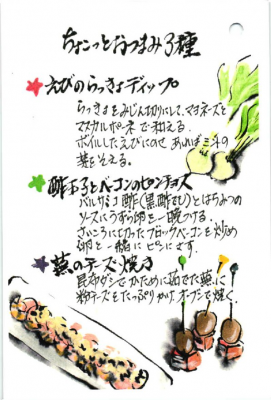 ちょこっとおつまみ3種
★えびのらっきょディップ
らっきょをみじん切りにして、マヨネーズと
マスカルポーネで和える。
ボイルしたえびにのせ、あればミニネの
葉をそえる。
★酢玉子とベーコンのピンチョス
バルサミコ酢(黒酢でも)とはちみつの
ソースにうずら卵を一晩つける。
さいころに切ったブロックベーコンを炒め
卵と一緒にピンにさす。
★蕪のチーズ焼き
昆布ダシでかために茹でた蕪に
粉チーズをたっぷりかけ、オーブンで焼く。